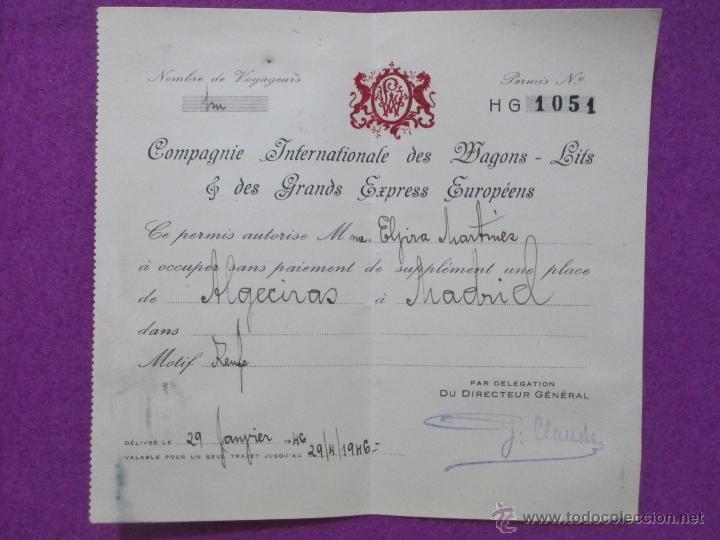 Nombre de Voyageurs
Permis No
HG 1051
Compagnie Internationale des Wagons-Lits
& des Grands Express Européens
Ce permis autorise Mme. Elvira Martínez
à occuper sans paiement de supplément une place
de Algeciras à Madrid
dans
Motif Renfe
PAR DELEGATION
DU DIRECTEUR GÉNÉRAL
J. Claude
DÉLIVRÉ LE 29 Janvier 1946
VALABLE POUR UN SEUL TRAJET JUSQU'AU 29/4/1946=
© www.todocoleccion.net